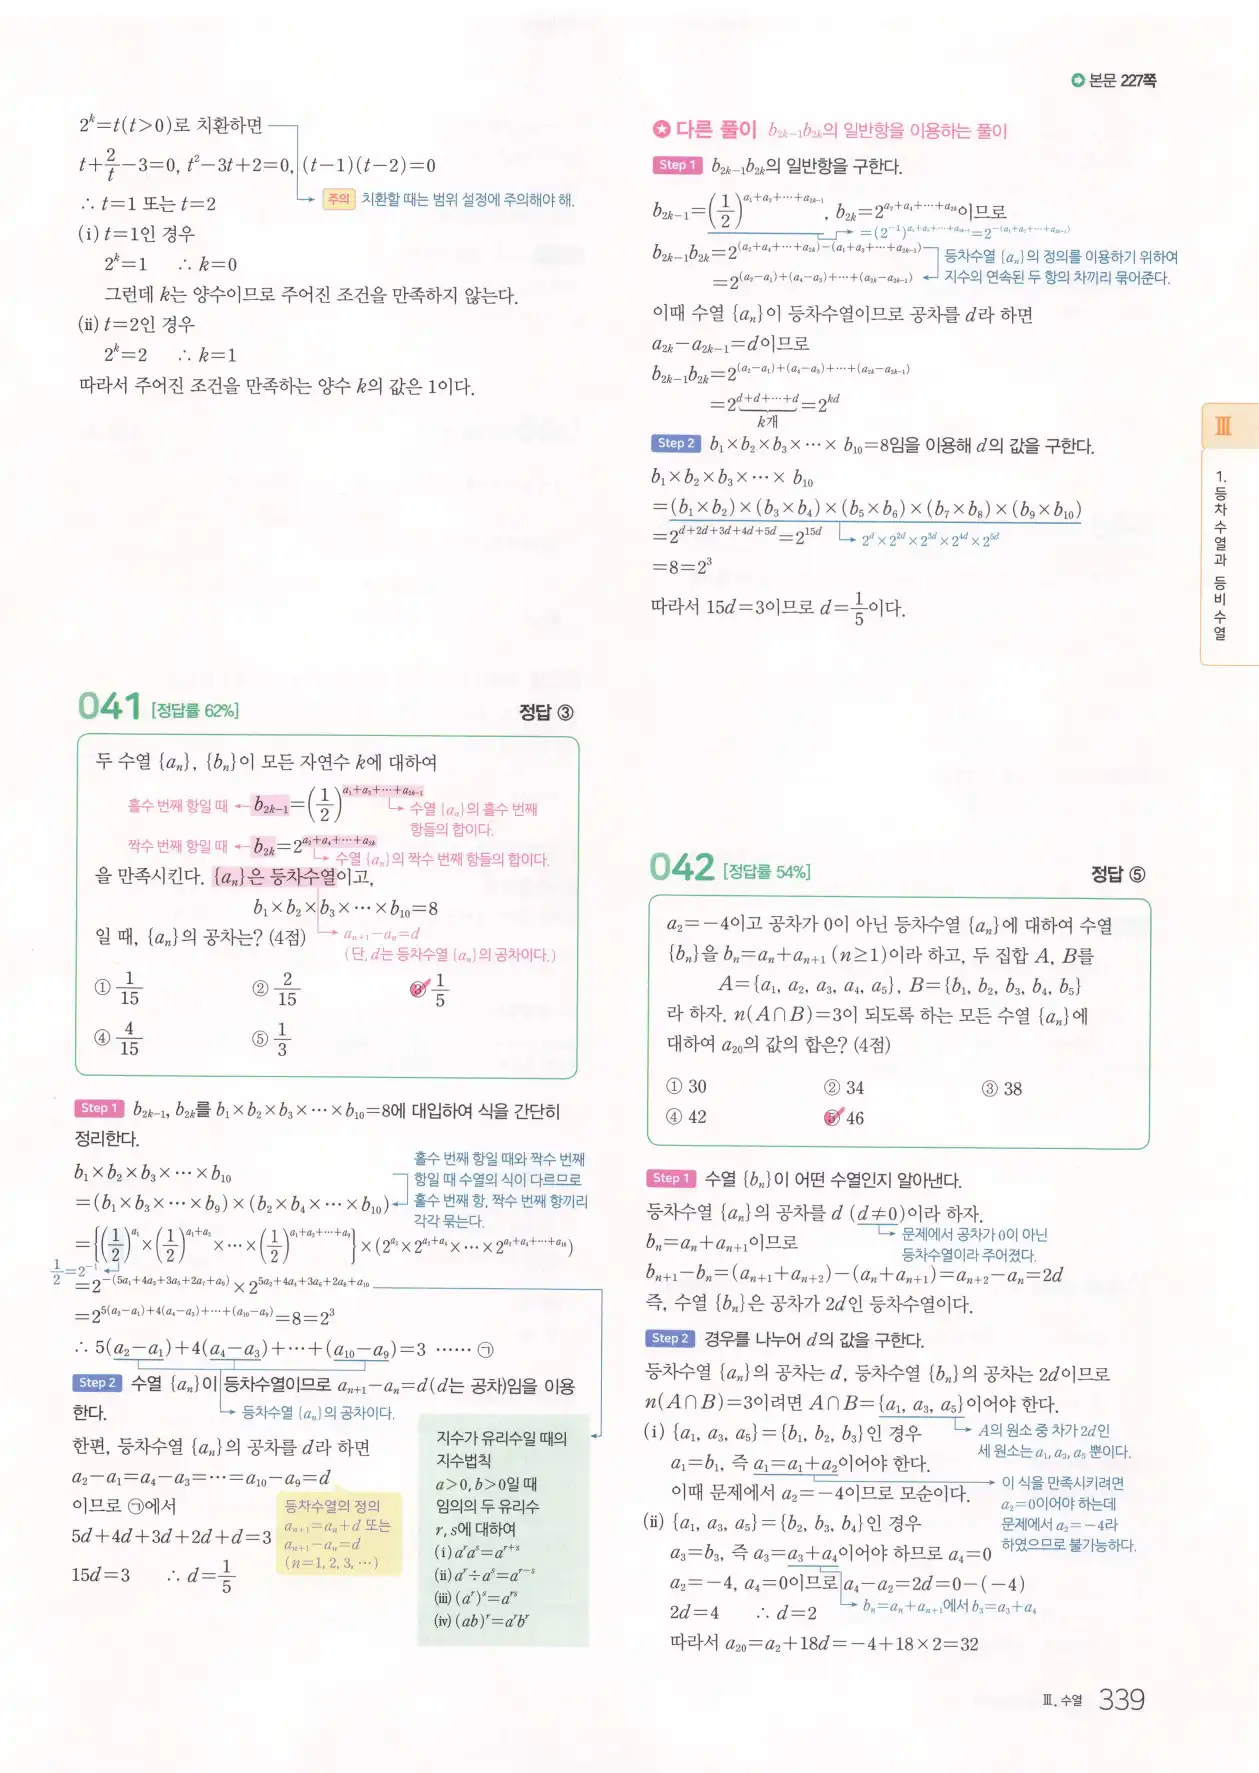 본문 227쪽
2^k=t(t>0)로 치환하면
t+2/t-3=0, t²-3t+2=0, (t-1)(t-2)=0
∴ t=1 또는 t=2
주의 치환할 때는 범위 설정에 주의해야 해.
(i) t=1인 경우
2^k=1 ∴ k=0
그런데 k는 양수이므로 주어진 조건을 만족하지 않는다.
(ii) t=2인 경우
2^k=2 ∴ k=1
따라서 주어진 조건을 만족하는 양수 k의 값은 1이다.
041 [정답률 62%] 정답 ③
두 수열 {a_n}, {b_n}이 모든 자연수 k에 대하여
홀수 번째 항일 때 ← b_{2k-1}=(1/2)^{a_1+a_3+⋯+a_{2k-1}}
수열 {a_n}의 홀수 번째
항들의 합이다.
짝수 번째 항일 때 ← b_{2k}=2^{a_2+a_4+⋯+a_{2k}}
수열 {a_n}의 짝수 번째 항들의 합이다.
을 만족시킨다. {a_n}은 등차수열이고,
b_1×b_2×b_3×⋯×b_{10}=8
일 때, {a_n}의 공차는? (4점)
a_{n+1}-a_n=d
(단, d는 등차수열 {a_n}의 공차이다.)
① 1/15 ② 2/15 ③ 1/5
④ 4/15 ⑤ 1/3
Step 1 b_{2k-1}, b_{2k}를 b_1×b_2×b_3×⋯×b_{10}=8에 대입하여 식을 간단히
정리한다.
b_1×b_2×b_3×⋯×b_{10}
=(b_1×b_3×⋯×b_9)×(b_2×b_4×⋯×b_{10})
홀수 번째 항일 때와 짝수 번째
항일 때 수열의 식이 다르므로
홀수 번째 항, 짝수 번째 항끼리
각각 묶는다.
={(1/2)^{a_1}×(1/2)^{a_1+a_3}×⋯×(1/2)^{a_1+a_3+⋯+a_9}}×(2^{a_2}×2^{a_2+a_4}×⋯×2^{a_2+a_4+⋯+a_{10}})
1/2=2^{-1}
=2^{-(5a_1+4a_3+3a_5+2a_7+a_9)}×2^{5a_2+4a_4+3a_6+2a_8+a_{10}}
=2^{5(a_2-a_1)+4(a_4-a_3)+⋯+(a_{10}-a_9)}=8=2³
∴ 5(a_2-a_1)+4(a_4-a_3)+⋯+(a_{10}-a_9)=3 ⋯⋯ ㉠
Step 2 수열 {a_n}이 등차수열이므로 a_{n+1}-a_n=d(d는 공차)임을 이용
한다.
등차수열 {a_n}의 공차이다.
한편, 등차수열 {a_n}의 공차를 d라 하면
a_2-a_1=a_4-a_3=⋯=a_{10}-a_9=d
이므로 ㉠에서
5d+4d+3d+2d+d=3
15d=3 ∴ d=1/5
등차수열의 정의
a_{n+1}=a_n+d 또는
a_{n+1}-a_n=d
(n=1, 2, 3, ⋯)
지수가 유리수일 때의
지수법칙
a>0, b>0일 때
임의의 두 유리수
r, s에 대하여
(i) a^r a^s=a^{r+s}
(ii) a^r÷a^s=a^{r-s}
(iii) (a^r)^s=a^{rs}
(iv) (ab)^r=a^r b^r
다른 풀이 b_{2k-1}b_{2k}의 일반항을 이용하는 풀이
Step 1 b_{2k-1}b_{2k}의 일반항을 구한다.
b_{2k-1}=(1/2)^{a_1+a_3+⋯+a_{2k-1}}, b_{2k}=2^{a_2+a_4+⋯+a_{2k}}이므로
=(2^{-1})^{a_1+a_3+⋯+a_{2k-1}}=2^{-(a_1+a_3+⋯+a_{2k-1})}
b_{2k-1}b_{2k}=2^{(a_2+a_4+⋯+a_{2k})-(a_1+a_3+⋯+a_{2k-1})}
=2^{(a_2-a_1)+(a_4-a_3)+⋯+(a_{2k}-a_{2k-1})}
등차수열 {a_n}의 정의를 이용하기 위하여
지수의 연속된 두 항의 차끼리 묶어준다.
이때 수열 {a_n}이 등차수열이므로 공차를 d라 하면
a_{2k}-a_{2k-1}=d이므로
b_{2k-1}b_{2k}=2^{(a_2-a_1)+(a_4-a_3)+⋯+(a_{2k}-a_{2k-1})}
=2^{d+d+⋯+d}=2^{kd}
k개
Step 2 b_1×b_2×b_3×⋯×b_{10}=8임을 이용해 d의 값을 구한다.
b_1×b_2×b_3×⋯×b_{10}
=(b_1×b_2)×(b_3×b_4)×(b_5×b_6)×(b_7×b_8)×(b_9×b_{10})
=2^{d+2d+3d+4d+5d}=2^{15d}
2^d×2^{2d}×2^{3d}×2^{4d}×2^{5d}
=8=2³
따라서 15d=3이므로 d=1/5이다.
042 [정답률 54%] 정답 ⑤
a_2=-4이고 공차가 0이 아닌 등차수열 {a_n}에 대하여 수열
{b_n}을 b_n=a_n+a_{n+1} (n≥1)이라 하고, 두 집합 A, B를
A={a_1, a_2, a_3, a_4, a_5}, B={b_1, b_2, b_3, b_4, b_5}
라 하자. n(A∩B)=3이 되도록 하는 모든 수열 {a_n}에
대하여 a_{20}의 값의 합은? (4점)
① 30 ② 34 ③ 38
④ 42 ⑤ 46
Step 1 수열 {b_n}이 어떤 수열인지 알아낸다.
등차수열 {a_n}의 공차를 d (d≠0)이라 하자.
문제에서 공차가 0이 아닌
등차수열이라 주어졌다.
b_n=a_n+a_{n+1}이므로
b_{n+1}-b_n=(a_{n+1}+a_{n+2})-(a_n+a_{n+1})=a_{n+2}-a_n=2d
즉, 수열 {b_n}은 공차가 2d인 등차수열이다.
Step 2 경우를 나누어 d의 값을 구한다.
등차수열 {a_n}의 공차는 d, 등차수열 {b_n}의 공차는 2d이므로
n(A∩B)=3이려면 A∩B={a_1, a_3, a_5}이어야 한다.
A의 원소 중 차가 2d인
세 원소는 a_1, a_3, a_5 뿐이다.
(i) {a_1, a_3, a_5}={b_1, b_2, b_3}인 경우
a_1=b_1, 즉 a_1=a_1+a_2이어야 한다.
이때 문제에서 a_2=-4이므로 모순이다.
이 식을 만족시키려면
a_2=0이어야 하는데
문제에서 a_2=-4라
하였으므로 불가능하다.
(ii) {a_1, a_3, a_5}={b_2, b_3, b_4}인 경우
a_3=b_3, 즉 a_3=a_3+a_4이어야 하므로 a_4=0
a_2=-4, a_4=0이므로 a_4-a_2=2d=0-(-4)
b_n=a_n+a_{n+1}에서 b_3=a_3+a_4
2d=4 ∴ d=2
따라서 a_{20}=a_2+18d=-4+18×2=32
Ⅲ
1. 등차수열과 등비수열
Ⅲ. 수열 339